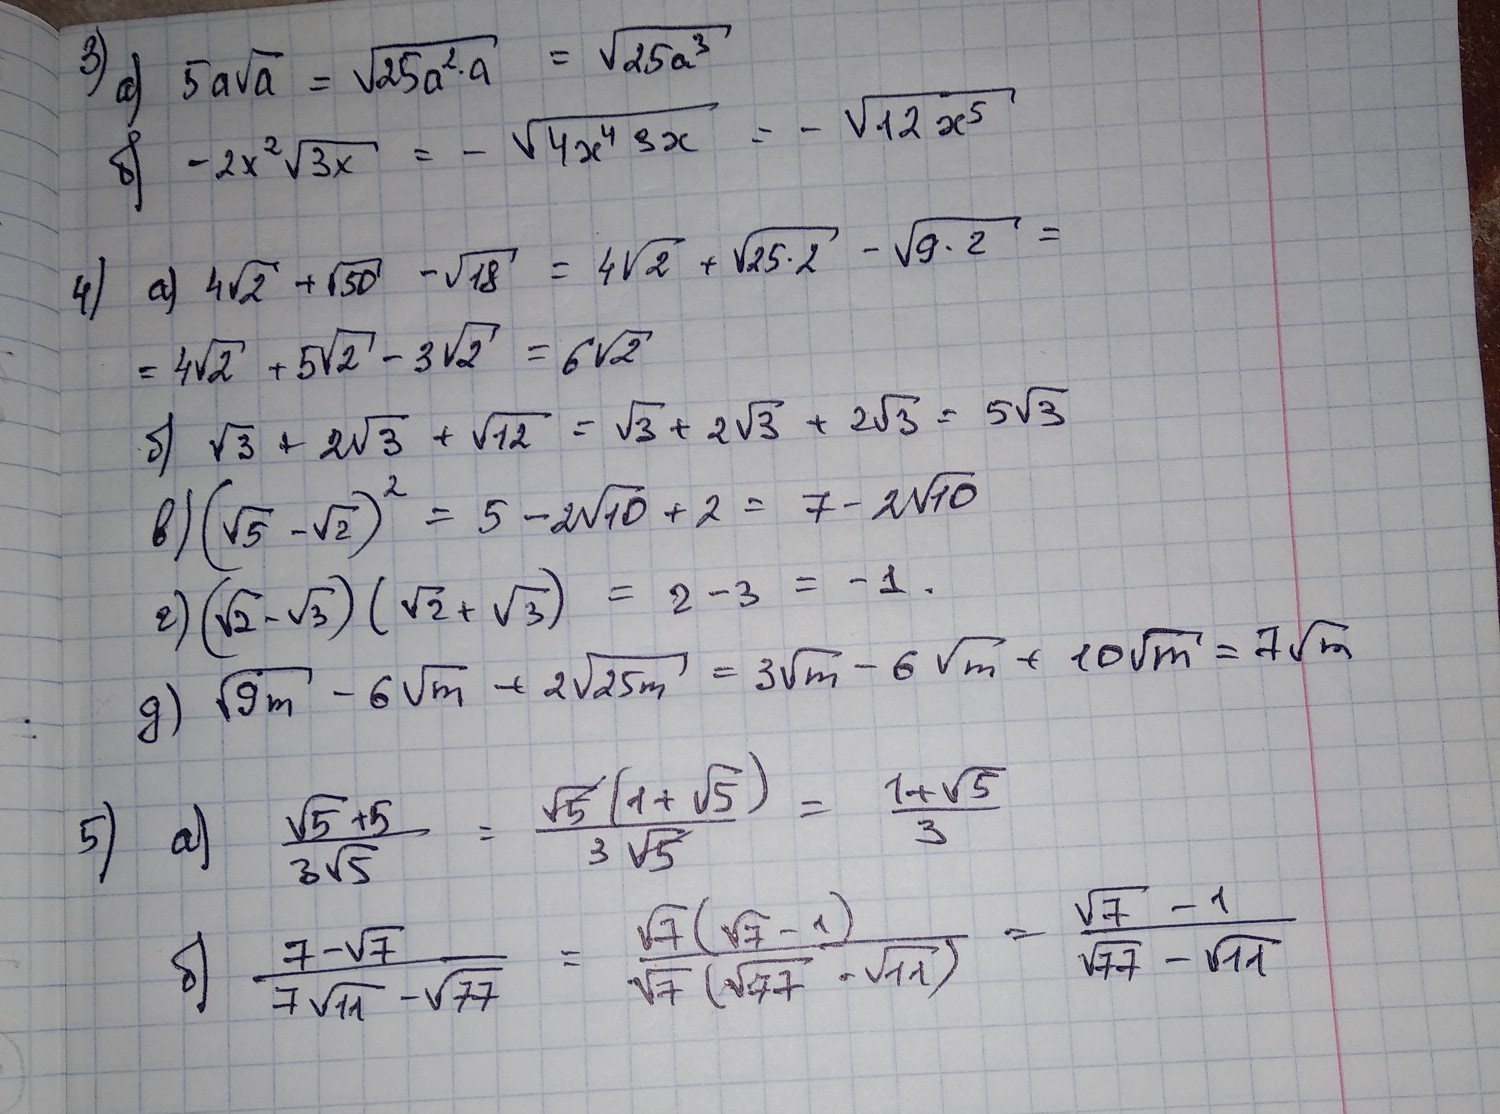 3) а) 5a√a = √25a²·a = √25a³
б) -2x²√3x = - √4x⁴ 3x = - √12x⁵
4) а) 4√2 + √50 - √18 = 4√2 + √25·2 - √9·2 =
= 4√2 + 5√2 - 3√2 = 6√2
б) √3 + 2√3 + √12 = √3 + 2√3 + 2√3 = 5√3
в) (√5 - √2)² = 5 - 2√10 + 2 = 7 - 2√10
г) (√2 - √3) (√2 + √3) = 2 - 3 = -1.
д) √9m - 6√m + 2√25m = 3√m - 6√m + 10√m = 7√m
5) а) (√5 + 5)/(3√5) = (√5(1 + √5))/(3√5) = (1 + √5)/3
б) (7 - √7)/(7√11 - √77) = (√7(√7 - 1))/(√7(√77 - √11)) = (√7 - 1)/(√77 - √11)